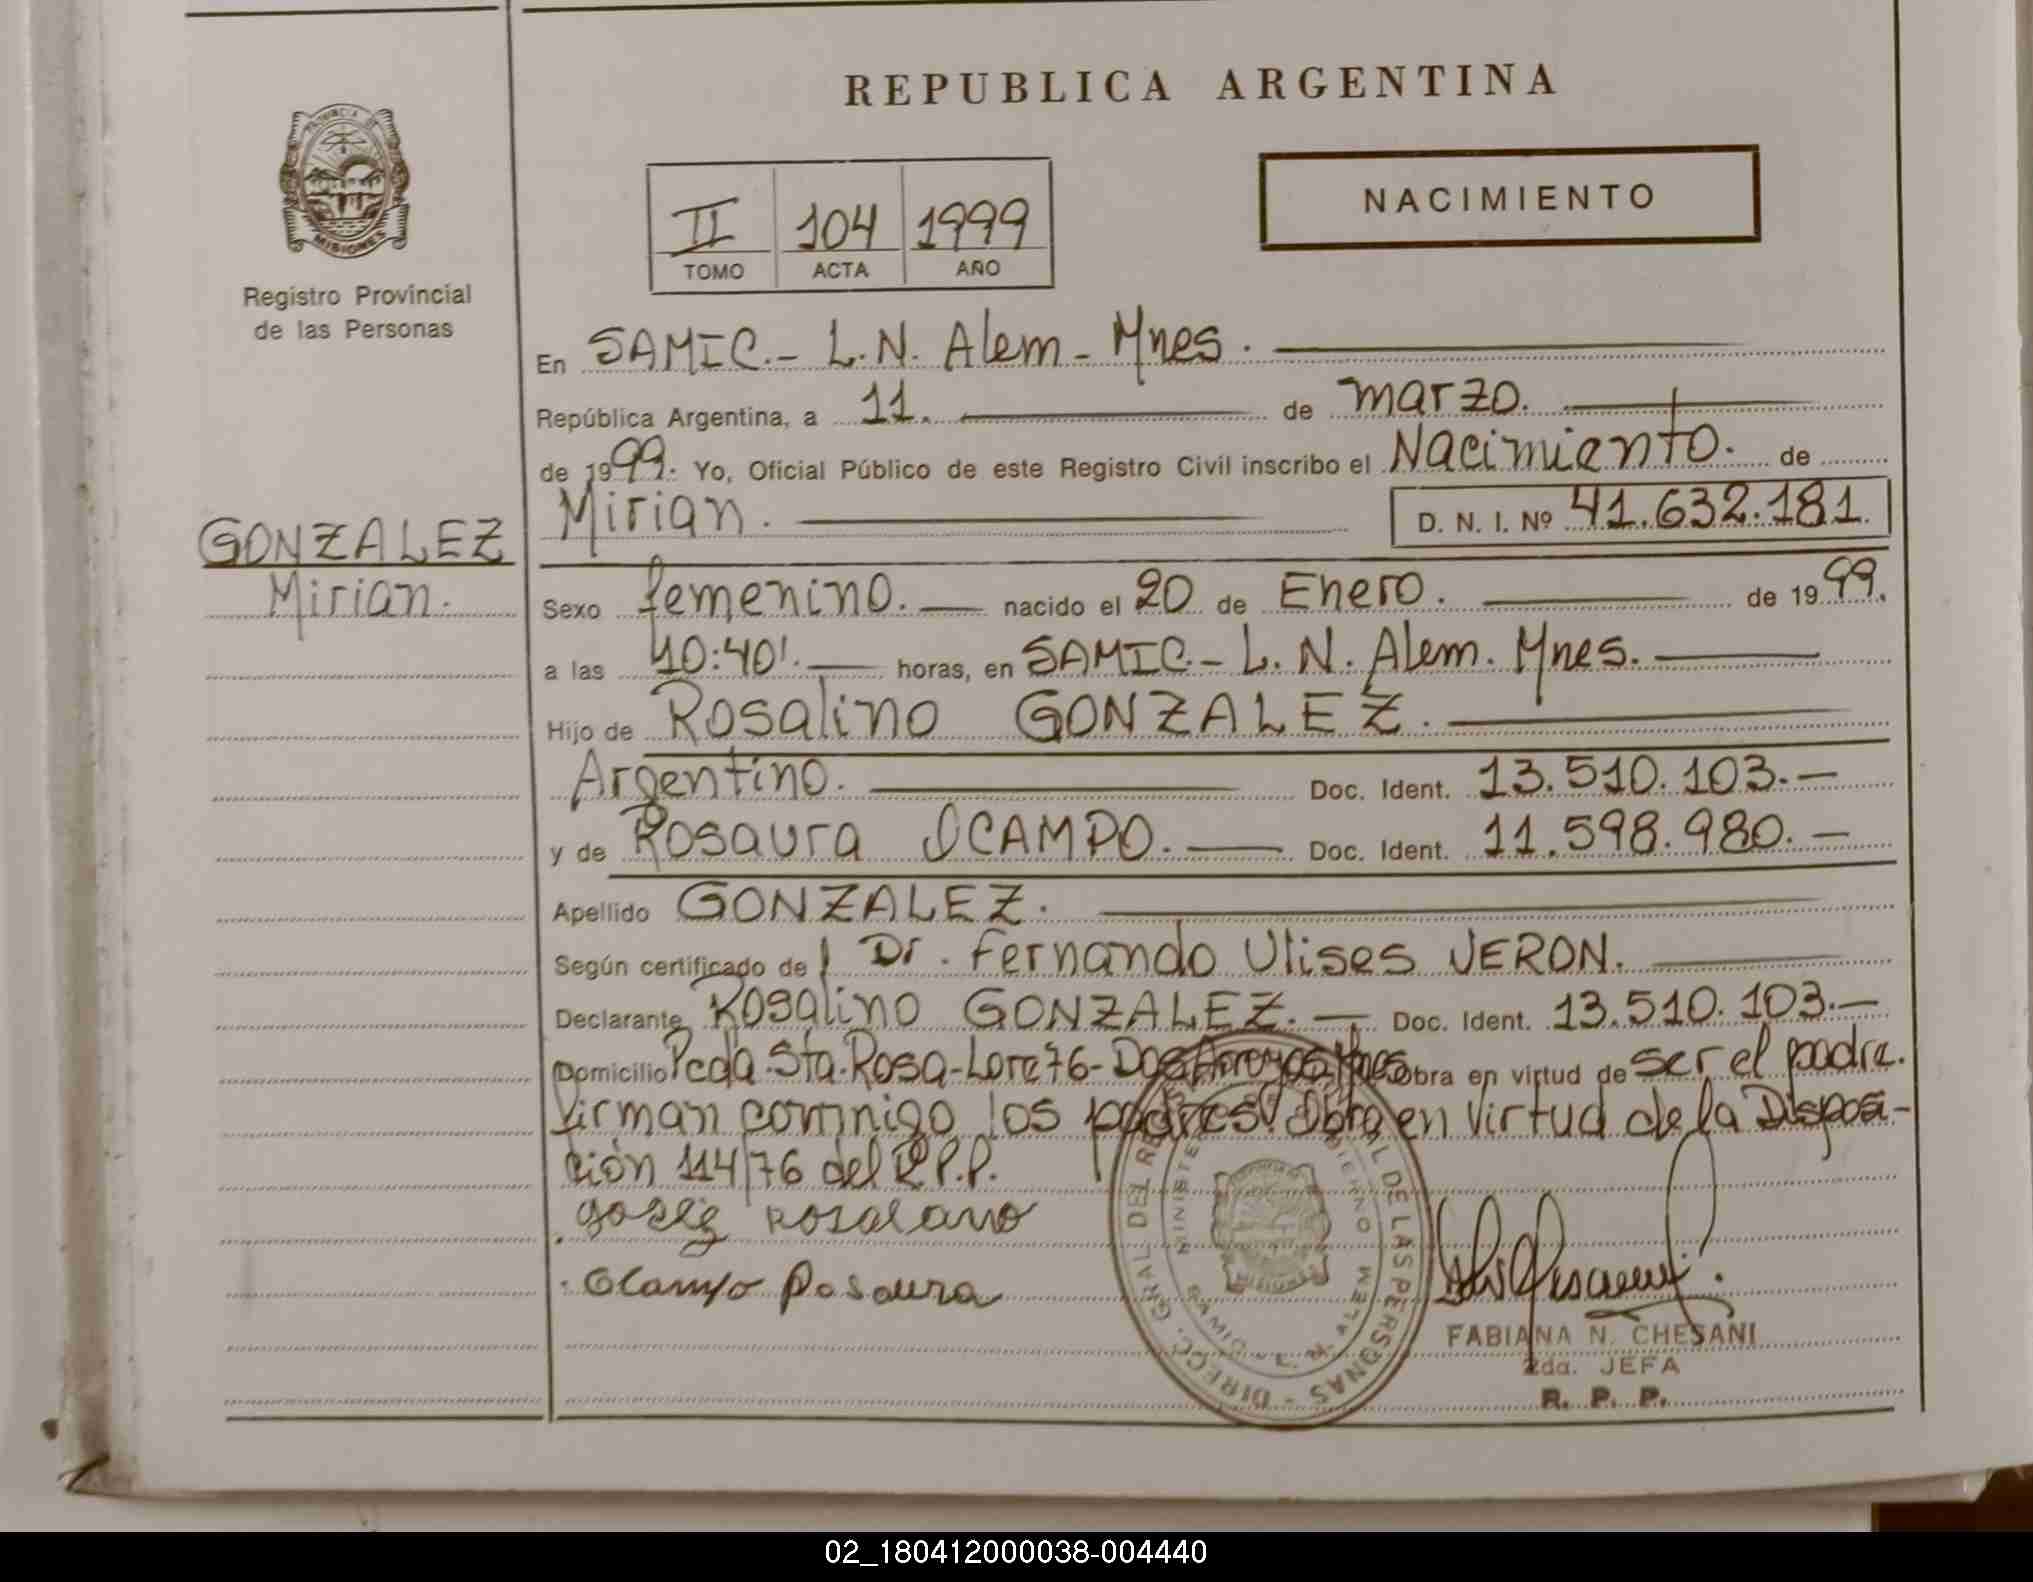 REPUBLICA ARGENTINA
PROVINCIA DE
MISIONES
Registro Provincial
de las Personas
NACIMIENTO
II 104 1999
TOMO ACTA AÑO
En SAMIC.- L.N. Alem - Mnes.
República Argentina, a 11. de marzo.
de 1999. Yo, Oficial Público de este Registro Civil inscribo el Nacimiento. de
Mirian. D. N. I. Nº 41.632.181.
GONZALEZ
Mirian.
Sexo femenino. nacido el 20 de Enero. de 1999.
a las 10:40'. horas, en SAMIC.- L.N. Alem. Mnes.
Hijo de Rosalino GONZALEZ.
Argentino. Doc. Ident. 13.510.103.-
y de Rosaura OCAMPO. Doc. Ident. 11.598.980.-
Apellido GONZALEZ.
Según certificado de Dr. Fernando Ulises VERON.
Declarante Rosalino GONZALEZ.- Doc. Ident. 13.510.103.-
Domicilio Pcda. Sta. Rosa-Lote 76- Dos Arroyos, Mnes. Obra en virtud de ser el padre.
Firman conmigo los padres. Obra en Virtud de la Disposi-
ción 114/76 del R.P.P.
Ocampo Rosaura
DIRECC. GRAL. DEL DE LAS PERSONAS
SAMIC - L. N. ALEM
FABIANA N. CHESANI
2da. JEFA
R. P. P.
02_180412000038-004440